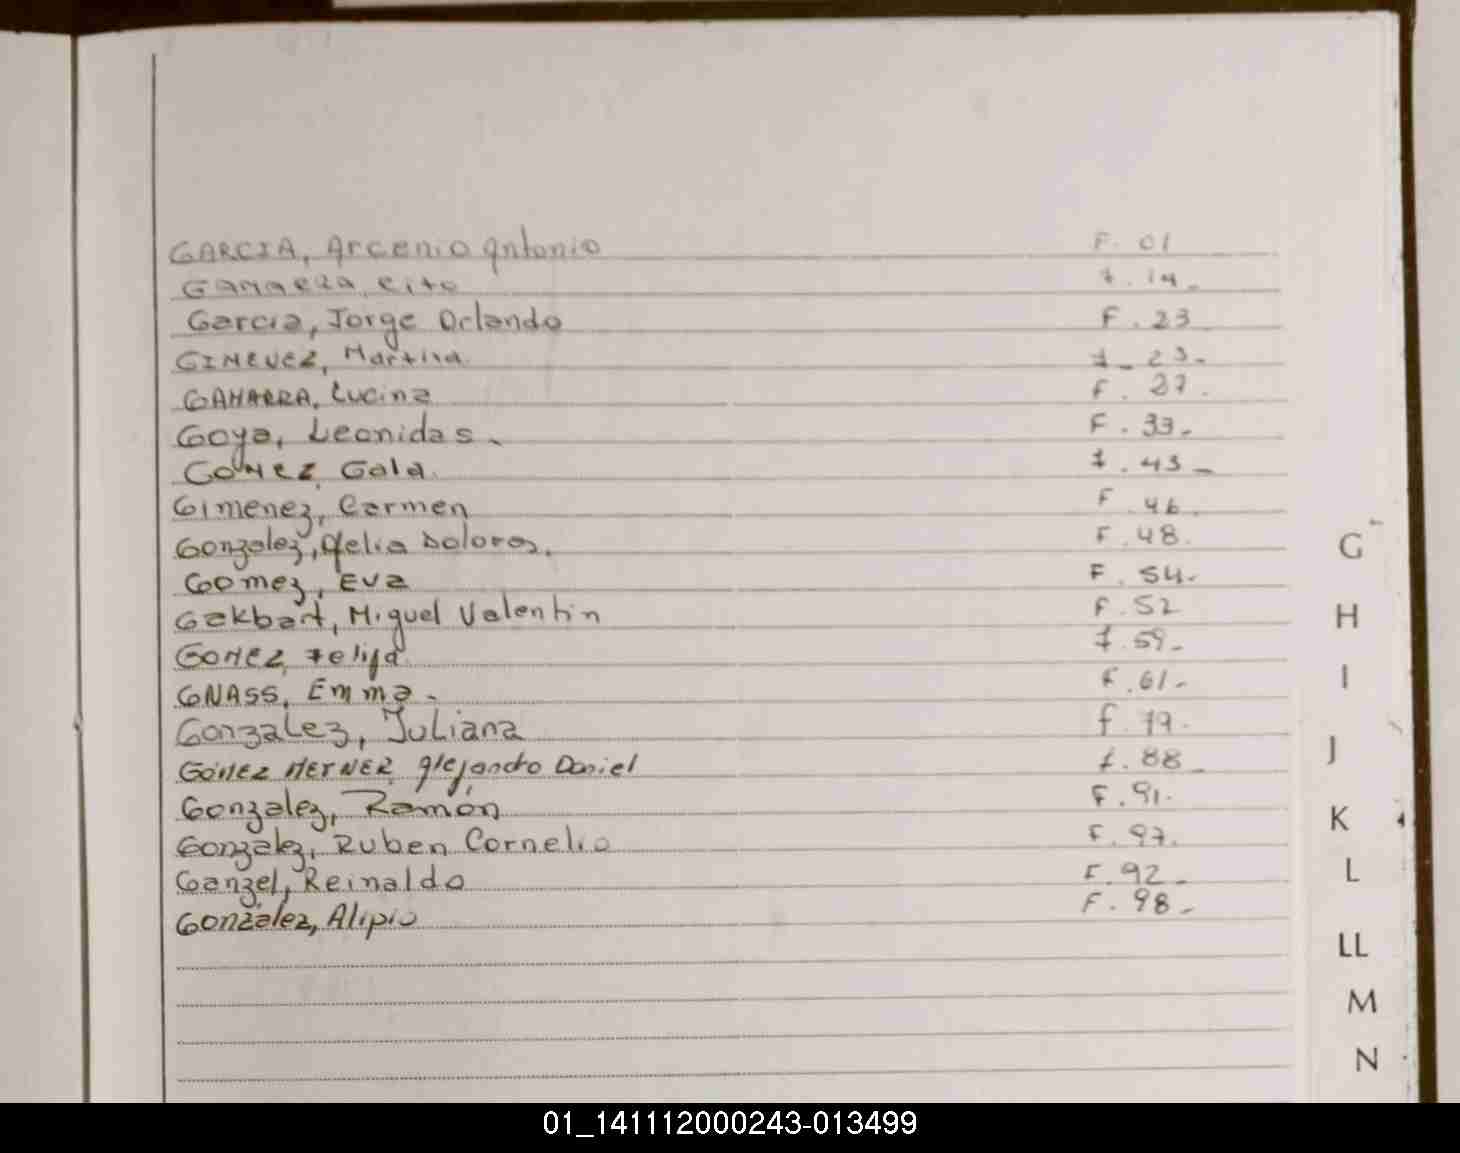 GARCIA, Arcenio Antonio F. 01
GAMARRA, Cito f. 14-
Garcia, Jorge Orlando F. 23
GIMENEZ, Martina f. 23-
GAMARRA, Lucina F. 27.
Goya, Leonidas. F. 33-
GOMEZ, Gala. f. 43-
Gimenez, Carmen F. 46.
Gonzalez, Delia Dolores. F. 48.
Gomez, Eva F. 54-
Gekbart, Miguel Valentin F. 52
GOMEZ, Felipa. f. 59-
GNASS, Emma- F. 61-
Gonzalez, Juliana f. 79-
GOMEZ MERNER, Alejandro Daniel f. 88-
Gonzalez, Ramón F. 91.
Gonzalez, Ruben Cornelio F. 97.
Ganzel, Reinaldo F. 92-
Gonzalez, Alipio F. 98-
G
H
I
J
K
L
LL
M
N
01_141112000243-013499